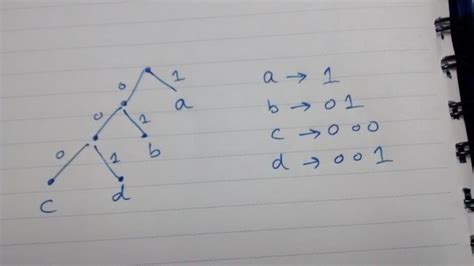 0 1
a
0 1
b
0 1
c d
a → 1
b → 0 1
c → 0 0 0
d → 0 0 1